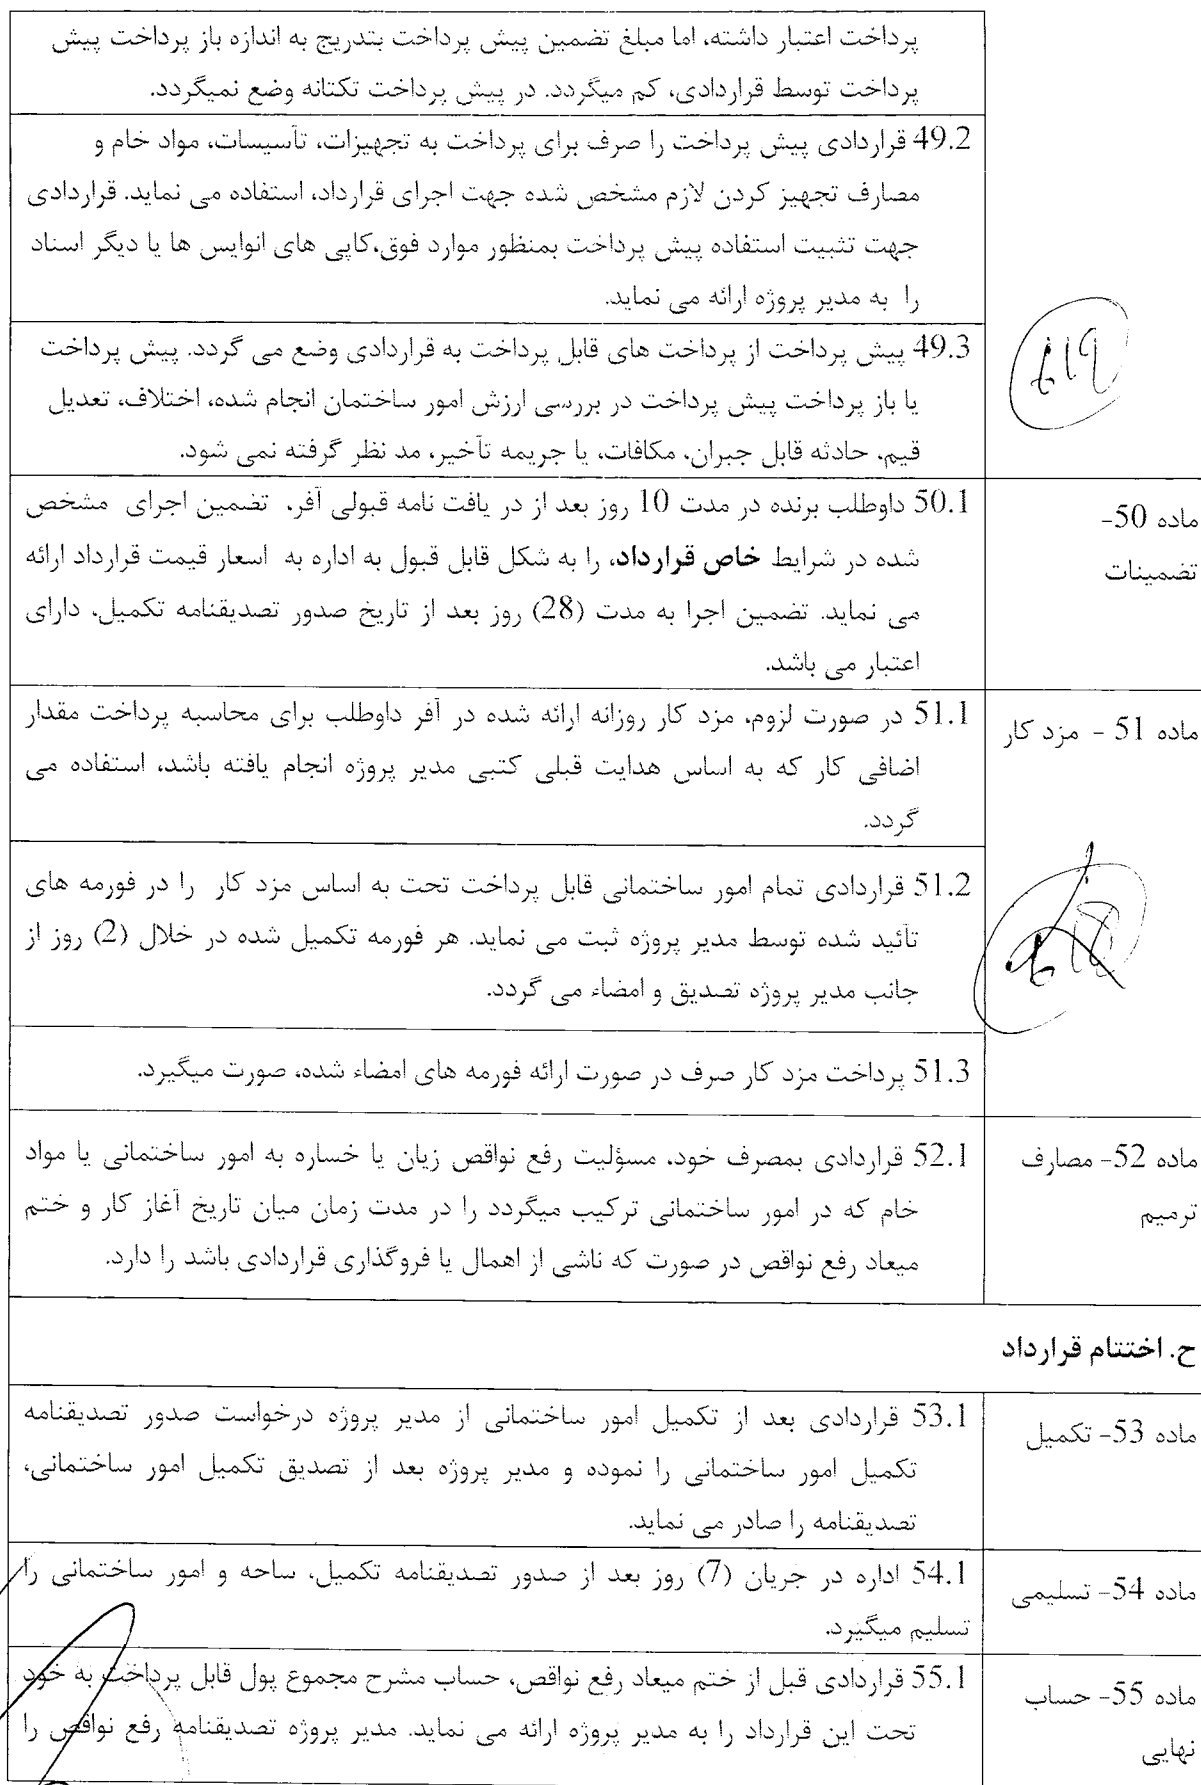 پرداخت اعتبار داشته، اما مبلغ تضمین پیش پرداخت بتدریج به اندازه باز پرداخت پیش
پرداخت توسط قراردادی، کم میگردد. در پیش پرداخت تکتانه وضع نمیگردد.
49.2 قراردادی پیش پرداخت را صرف برای پرداخت به تجهیزات، تآسیسات، مواد خام و
مصارف تجهیز کردن لازم مشخص شده جهت اجرای قرارداد، استفاده می نماید. قراردادی
جهت تثبیت استفاده پیش پرداخت بمنظور موارد فوق،کاپی های انوایس ها یا دیگر اسناد
را به مدیر پروژه ارائه می نماید.
49.3 پیش پرداخت از پرداخت های قابل پرداخت به قراردادی وضع می گردد. پیش پرداخت
یا باز پرداخت پیش پرداخت در بررسی ارزش امور ساختمان انجام شده، اختلاف، تعدیل
قیم، حادثه قابل جبران، مکافات، یا جریمه تآخیر، مد نظر گرفته نمی شود.
ماده 50-
تضمینات
50.1 داوطلب برنده در مدت 10 روز بعد از در یافت نامه قبولی آفر، تضمین اجرای مشخص
شده در شرایط خاص قرارداد، را به شکل قابل قبول به اداره به اسعار قیمت قرارداد ارائه
می نماید. تضمین اجرا به مدت (28) روز بعد از تاریخ صدور تصدیقنامه تکمیل، دارای
اعتبار می باشد.
ماده 51 - مزد کار
51.1 در صورت لزوم، مزد کار روزانه ارائه شده در آفر داوطلب برای محاسبه پرداخت مقدار
اضافی کار که به اساس هدایت قبلی کتبی مدیر پروژه انجام یافته باشد، استفاده می
گردد.
51.2 قراردادی تمام امور ساختمانی قابل پرداخت تحت به اساس مزد کار را در فورمه های
تآئید شده توسط مدیر پروژه ثبت می نماید. هر فورمه تکمیل شده در خلال (2) روز از
جانب مدیر پروژه تصدیق و امضاء می گردد.
51.3 پرداخت مزد کار صرف در صورت ارائه فورمه های امضاء شده، صورت میگیرد.
ماده 52- مصارف
ترمیم
52.1 قراردادی بمصرف خود، مسؤلیت رفع نواقص زیان یا خساره به امور ساختمانی یا مواد
خام که در امور ساختمانی ترکیب میگردد را در مدت زمان میان تاریخ آغاز کار و ختم
میعاد رفع نواقص در صورت که ناشی از اهمال یا فروگذاری قراردادی باشد را دارد.
ح. اختتام قرارداد
ماده 53- تکمیل
53.1 قراردادی بعد از تکمیل امور ساختمانی از مدیر پروژه درخواست صدور تصدیقنامه
تکمیل امور ساختمانی را نموده و مدیر پروژه بعد از تصدیق تکمیل امور ساختمانی،
تصدیقنامه را صادر می نماید.
ماده 54- تسلیمی
54.1 اداره در جریان (7) روز بعد از صدور تصدیقنامه تکمیل، ساحه و امور ساختمانی را
تسلیم میگیرد.
ماده 55- حساب
نهایی
55.1 قراردادی قبل از ختم میعاد رفع نواقص، حساب مشرح مجموع پول قابل پرداخت به خود
تحت این قرارداد را به مدیر پروژه ارائه می نماید. مدیر پروژه تصدیقنامه رفع نواقص را